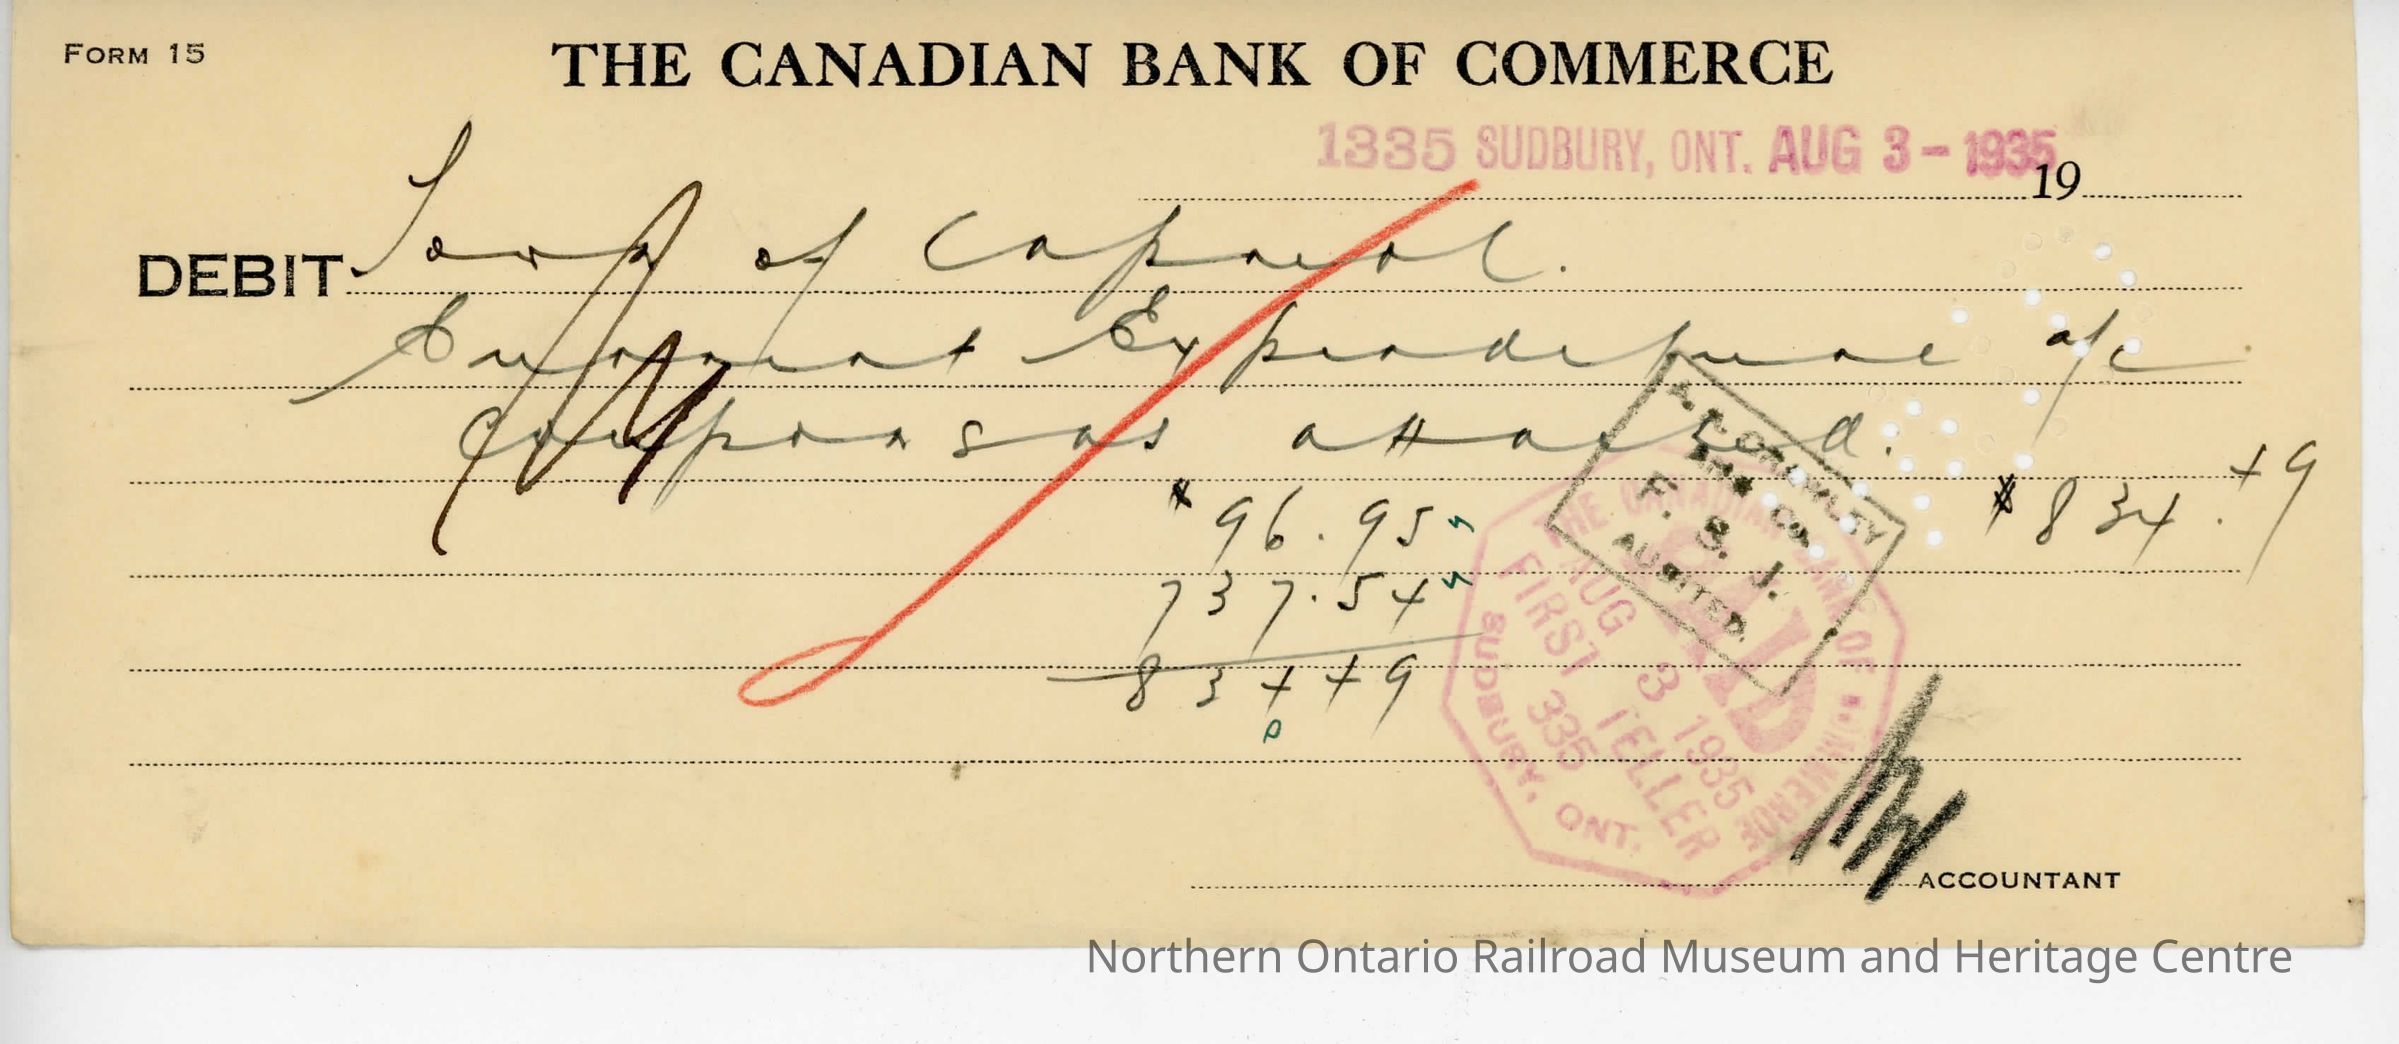 FORM 15
THE CANADIAN BANK OF COMMERCE
1335 SUDBURY, ONT. AUG 3 - 1935
19
DEBIT Town of Capreol.
Current Expenditure a/c
Coupons as attached.
$96.95 $834.49
737.54
834 49
A. P. CROWLEY
AND CO.
F. S. J.
AUDITED.
THE CANADIAN BANK OF COMMERCE
PAID
AUG 3 1935
FIRST TELLER
335
SUDBURY, ONT.
ACCOUNTANT
Northern Ontario Railroad Museum and Heritage Centre